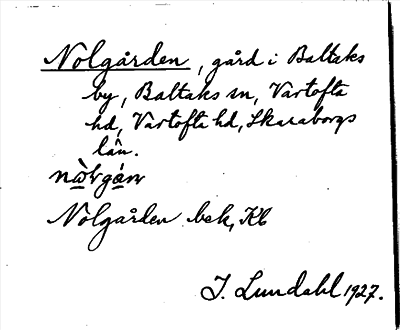 Nolgården, gård i Baltaks
by, Baltaks sn, Vartofta
hd, Vartofta hd, Skaraborgs
län.
Nolgården bek, Kb
J. Lundahl 1927.